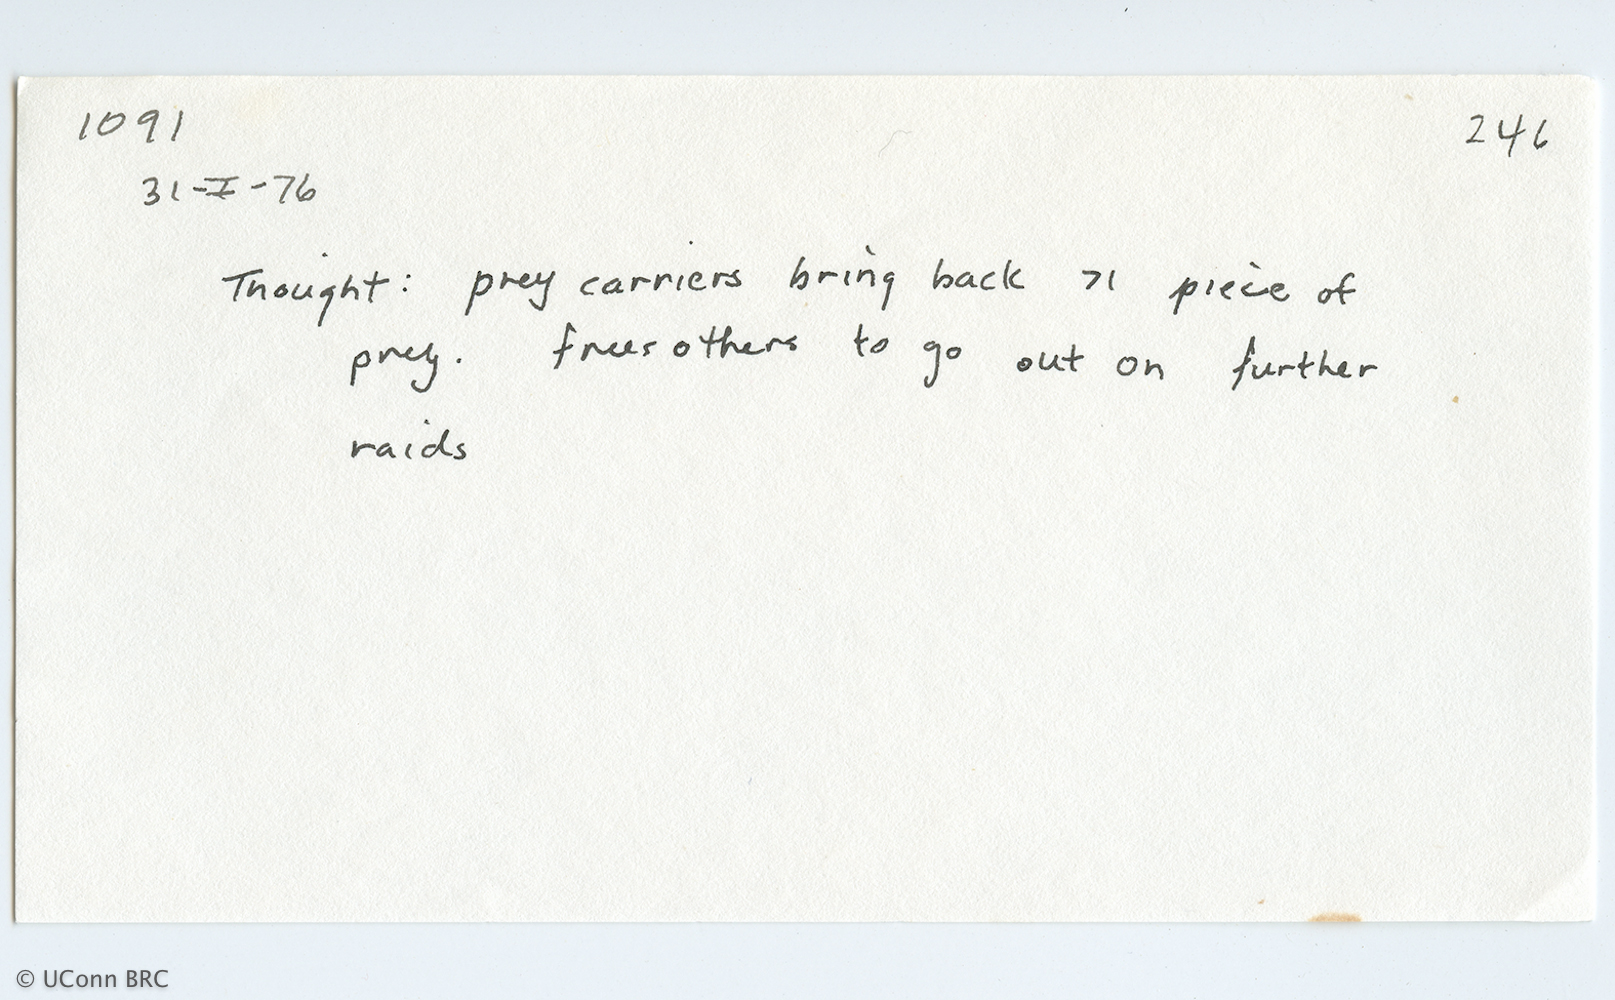 1091
246
31-I-76
Thought: prey carriers bring back >1 piece of
prey. frees others to go out on further
raids
© UConn BRC